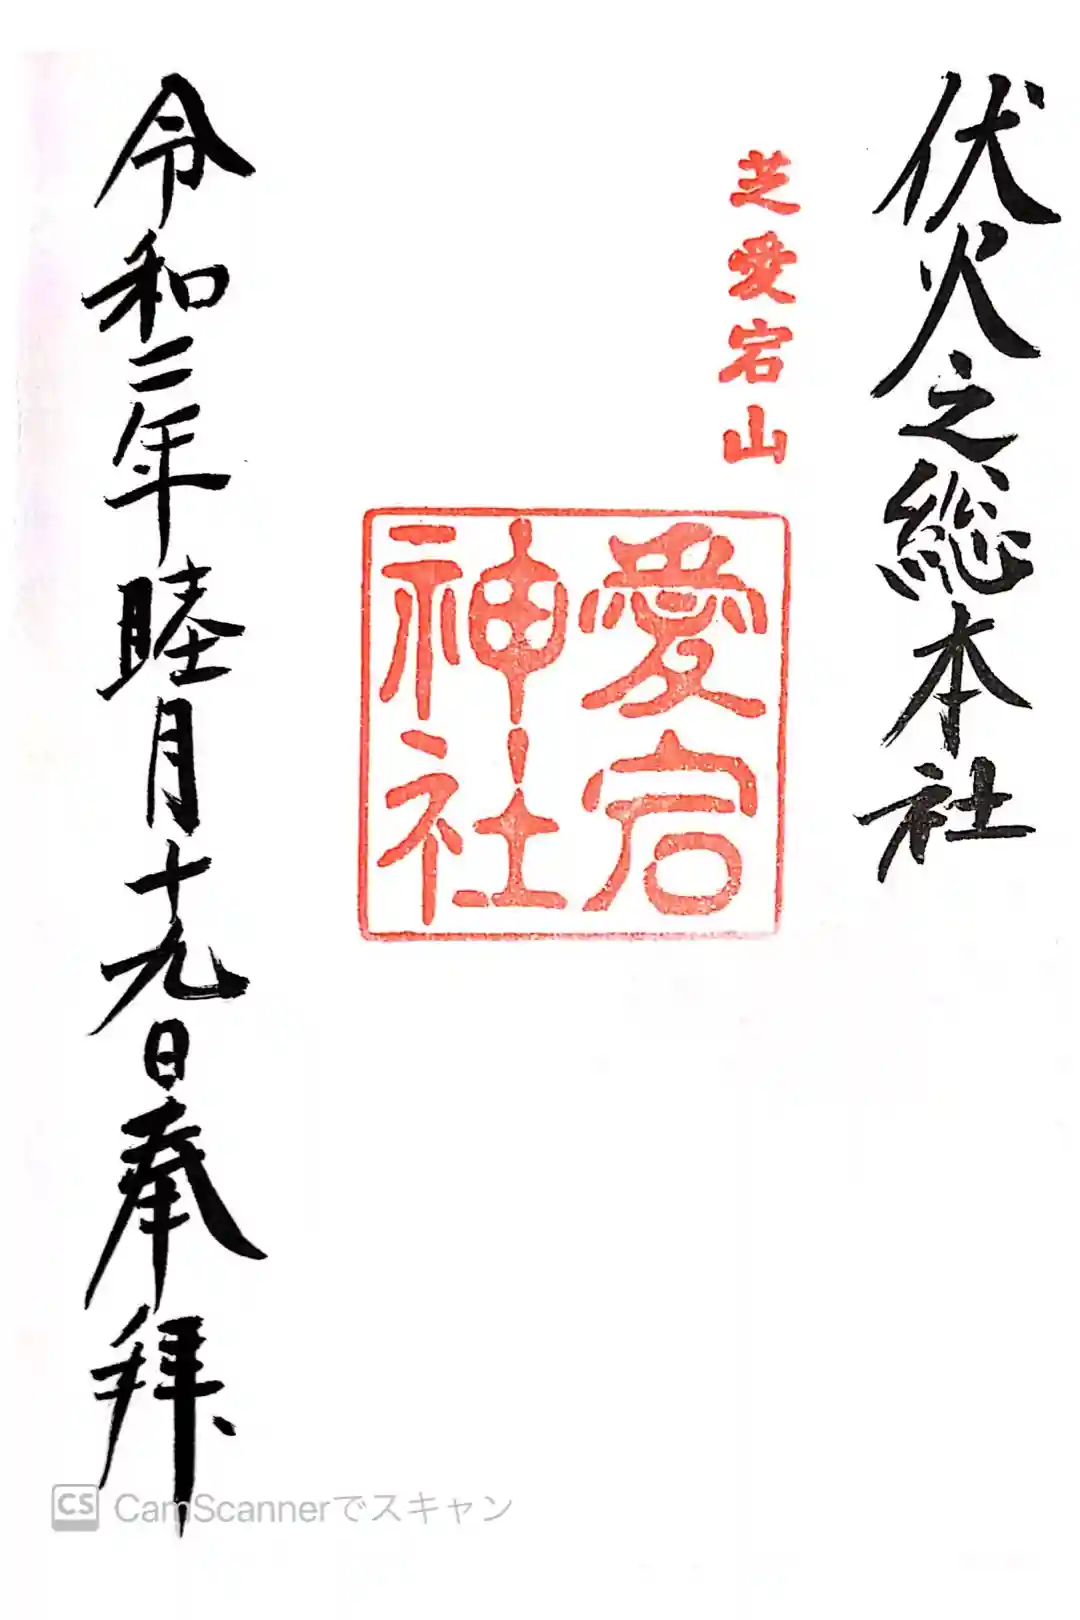 伏火之総本社
芝愛宕山
愛宕
神社
令和二年睦月十九日奉拝
CS CamScannerでスキャン